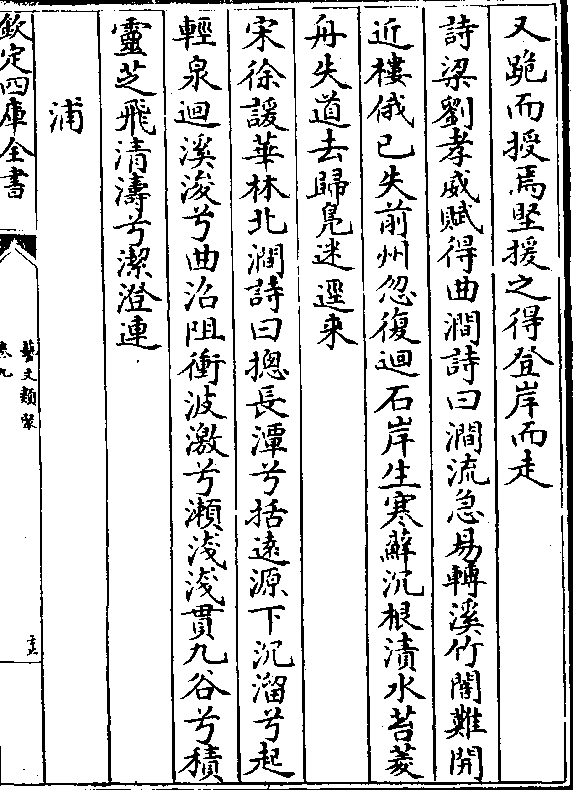 又跪而授焉堅援之得登岸而走
詩梁劉孝威賦得曲澗詩曰澗流急易轉溪竹闇難開
近樓俄已失前州忽復迴石岸生寒蘚沉根漬水苔菱
舟失道去歸鳧迷逕来
宋徐諼華林北澗詩曰摠長潭兮括遠源下沉溜兮起
輕泉迴溪浚兮曲沿阻衝波激兮瀬淺淺貫九谷兮積
靈芝飛清濤兮潔澄連
浦
欽定四庫全書
藝文類聚
卷九